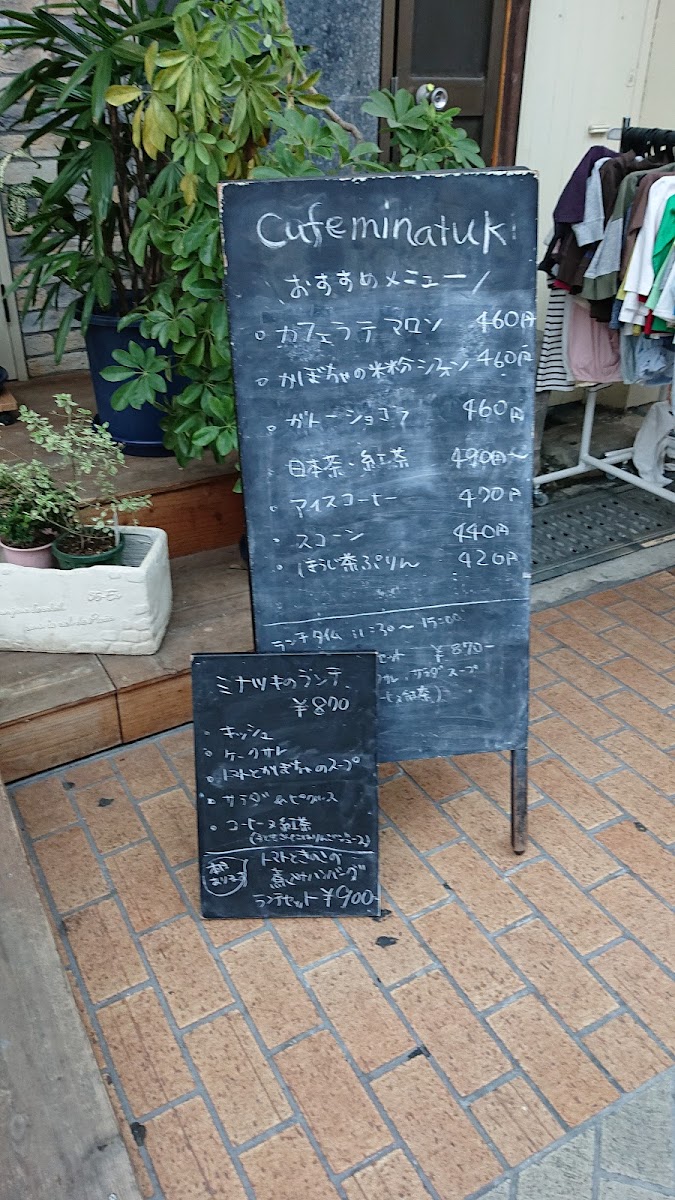 Cafe minatuki
おすすめメニュー
カフェラテ マロン 460円
かぼちゃの米粉シフォン 460円
ガトーショコラ 460円
日本茶・紅茶 490円〜
アイスコーヒー 470円
スコーン 440円
ほうじ茶ぷりん 420円
ランチタイム 11:30〜15:00
セット ¥870-
サレ・サラダスープ
ヒーヌ紅茶)
ミナツキのランチ
¥870
キッシュ
ケークサレ
トマトとかぼちゃのスープ
サラダ&ピクルス
コーヒーヌ紅茶
トマトときのこの
煮込みハンバーグ
ランチセット ¥900-